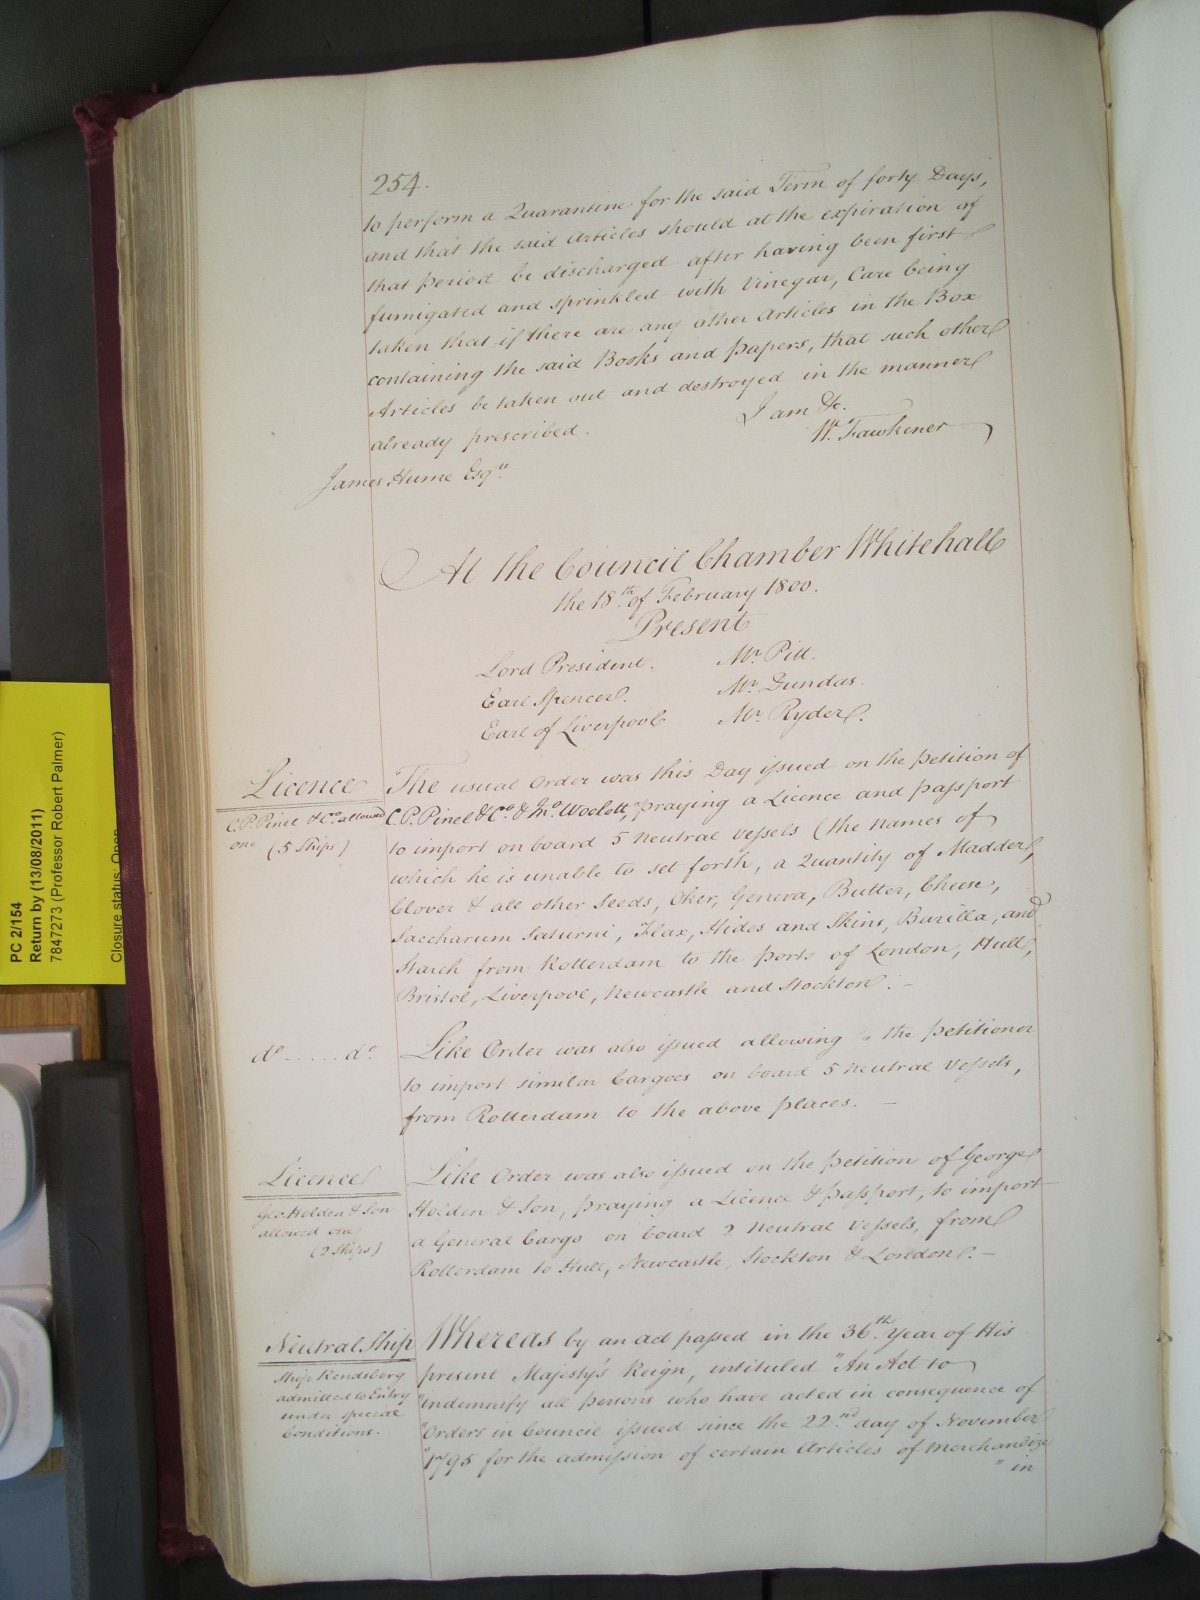 254.
to perform a Quarantine for the said Term of forty Days,
and that the said Articles should at the expiration of
that period be discharged after having been first
fumigated and sprinkled with Vinegar, Care being
taken that if there are any other Articles in the Box
containing the said Books and papers, that such other
Articles be taken out and destroyed in the manner
already prescribed.
I am &c.
W. Fawkener
James Hume Esqre.
At the Council Chamber Whitehall
the 18th of February 1800.
Present
Lord President. Mr. Pitt.
Earl Spencer. Mr. Dundas.
Earl of Liverpool Mr. Ryder.
Licence
C. P. Pinel & Co. allowed
one (5 Ships)
The usual Order was this Day issued on the petition of
C. P. Pinel & Co. & Jno. Woclott, praying a Licence and passport
to import on board 5 neutral vessels (the names of
which he is unable to set forth, a Quantity of Madder,
Clover & all other Seeds, Oker, Geneva, Butter, Cheese,
Saccharum Saturni, Flax, Hides and Skins, Barilla, and
Starch from Rotterdam to the ports of London, Hull,
Bristol, Liverpool, Newcastle and Stockton. —
do. ..... do.
Like Order was also issued allowing the petitioner
to import similar Cargoes on board 5 neutral vessels,
from Rotterdam to the above places. —
Licence
Geo. Holden & Son
allowed one
(2 Ships)
Like Order was also issued on the petition of George
Holden & Son, praying a Licence & passport, to import
a General Cargo on board 2 neutral vessels, from
Rotterdam to Hull, Newcastle, Stockton & London. —
Neutral Ship
Ship Kendsberg
admitted to Entry
under special
Conditions.
Whereas by an act passed in the 36th. Year of His
present Majesty's Reign, intituled "An Act to
"indemnify all persons who have acted in consequence of
"Orders in Council issued since the 22nd. day of November
"1795 for the admission of certain Articles of Merchandize
" in
PC 2/154
Return by (13/08/2011)
7847273 (Professor Robert Palmer)
Closure status: Open